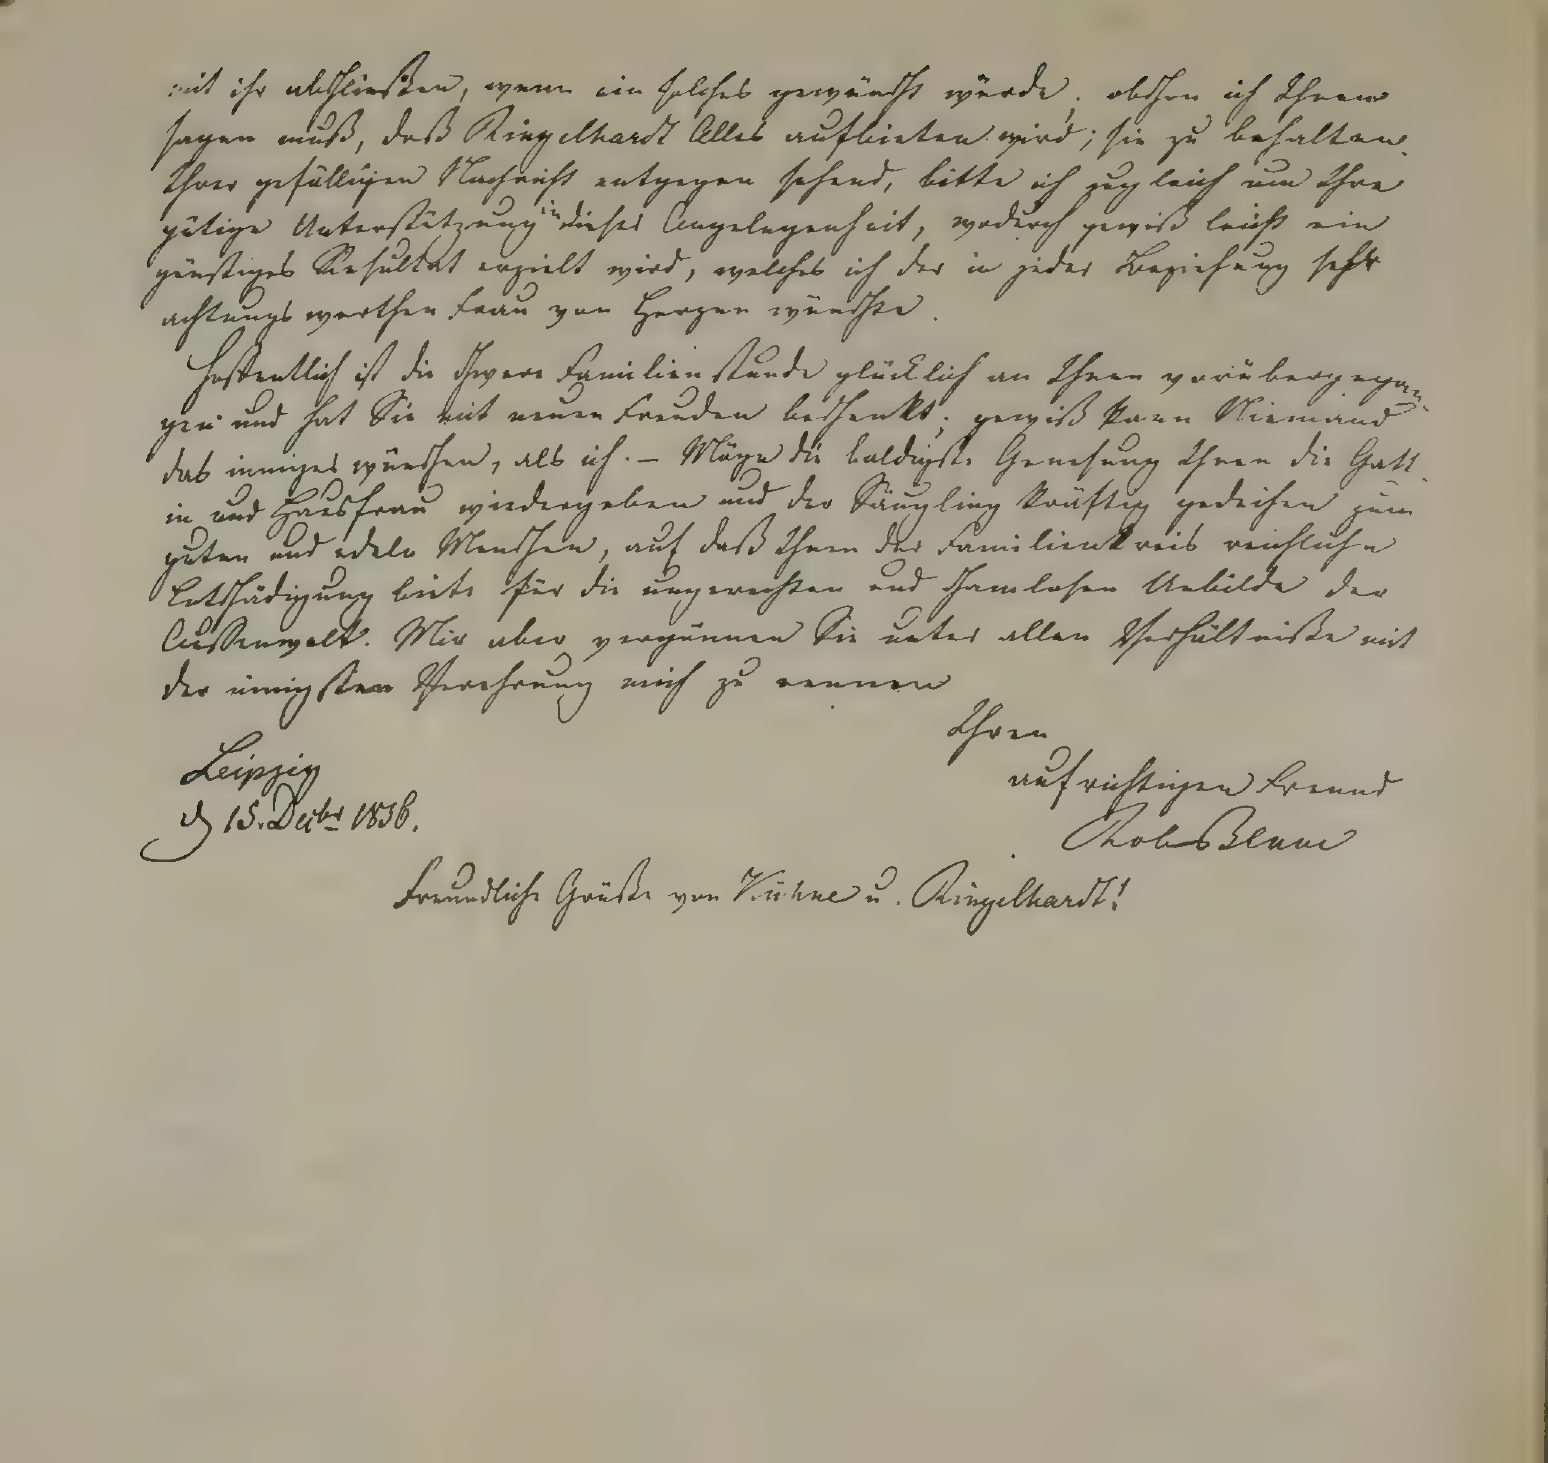 mit ihr abschließen, wenn ein solches gewünscht würde; obschon ich Ihnen
sagen muß, daß Ringelhardt Alles aufbieten wird, sie zu behalten.
Ihrer gefälligen Nachricht entgegen sehend, bitte ich zugleich um Ihre
gütige Unterstützung in dieser Angelegenheit, wodurch gewiß leicht ein
günstiges Resultat erzielt wird, welches ich der in jeder Beziehung sehr
achtungswerthen Frau von Herzen wünschte.
Hoffentlich ist die schwere Familienstunde glücklich an Ihnen vorübergegan-
gen und hat Sie mit neuen Freuden beschenkt; gewiß kann Niemand
das inniger wünschen, als ich. – Möge die baldigste Genesung Ihnen die Gatt-
in und Hausfrau wiedergeben und der Säugling kräftig gedeihen zum
guten und edeln Menschen, auf daß Ihnen der Familienkreis reichliche
Entschädigung biete für die ungerechten und schamlosen Unbilde der
Aussenwelt. Mir aber vergönnen Sie unter allen Verhältnisse mit
der innigsten Verehrung mich zu nennen
Ihren
aufrichtigen Freund
Leipzig
d 15. Decbr 1836.
Rob Blum
Freundliche Grüße von Kühne u. Ringelhardt!